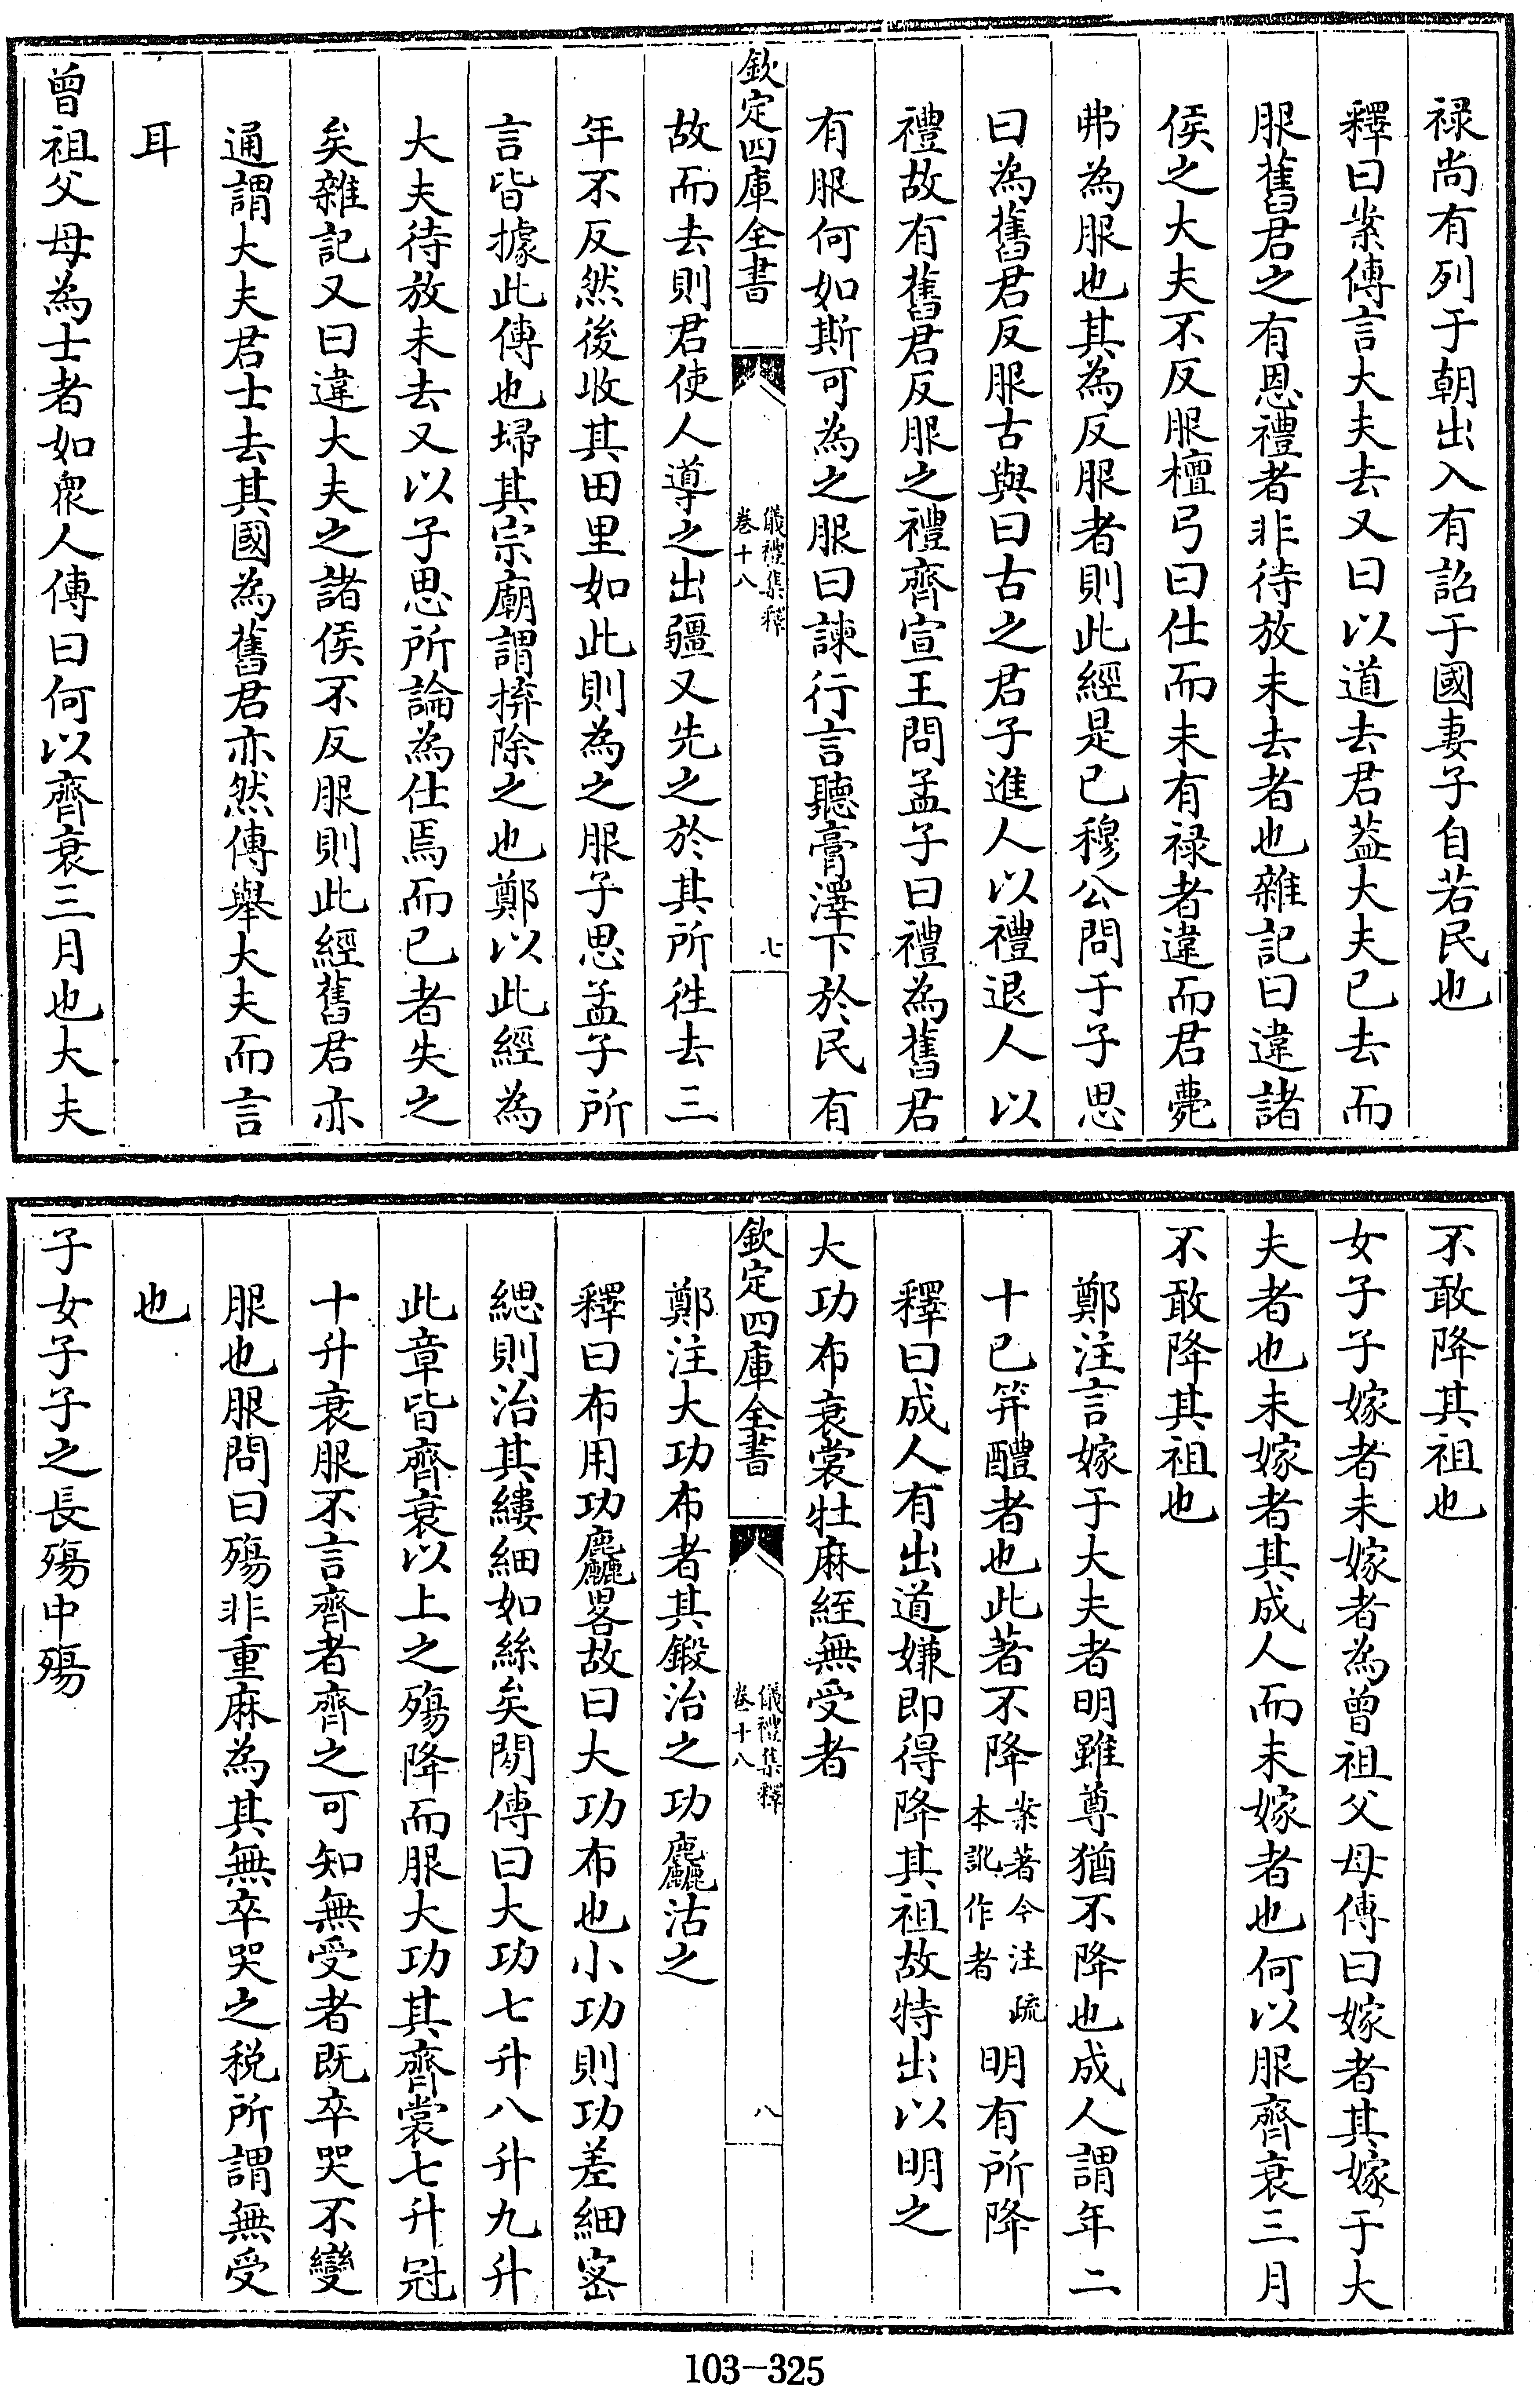 禄尚有列于朝出入有詔于國妻子自若民也
釋曰案傳言大夫去又曰以道去君葢大夫已去而
服舊君之有恩禮者非待放未去者也雜記曰違諸
侯之大夫不反服檀弓曰仕而未有禄者違而君薨
弗為服也其為反服者則此經是已穆公問于子思
曰為舊君反服古與曰古之君子進人以禮退人以
禮故有舊君反服之禮齊宣王問孟子曰禮為舊君
有服何如斯可為之服曰諫行言聽膏澤下於民有
欽定四庫全書
儀禮集釋
卷十八
七
故而去則君使人導之出疆又先之於其所徃去三
年不反然後收其田里如此則為之服子思孟子所
言皆據此傳也埽其宗廟謂拚除之也鄭以此經為
大夫待放未去又以子思所論為仕焉而已者失之
矣雜記又曰違大夫之諸侯不反服則此經舊君亦
通謂大夫君士去其國為舊君亦然傳舉大夫而言
耳
曾祖父母為士者如衆人傳曰何以齊衰三月也大夫
不敢降其祖也
女子子嫁者未嫁者為曾祖父母傳曰嫁者其嫁于大
夫者也未嫁者其成人而未嫁者也何以服齊衰三月
不敢降其祖也
鄭注言嫁于大夫者明雖尊猶不降也成人謂年二
十已筓醴者也此著不降案著今注疏本訛作者明有所降
釋曰成人有出道嫌即得降其祖故特出以明之
大功布衰裳牡麻絰無受者
欽定四庫全書
儀禮集釋
卷十八
八
鄭注大功布者其鍛治之功麤沽之
釋曰布用功麤畧故曰大功布也小功則功差細密
緦則治其縷細如絲矣閒傳曰大功七升八升九升
此章皆齊衰以上之殤降而服大功其齊裳七升冠
十升衰服不言齊者齊之可知無受者既卒哭不變
服也服問曰殤非重麻為其無卒哭之稅所謂無受
也
子女子子之長殤中殤
103-325